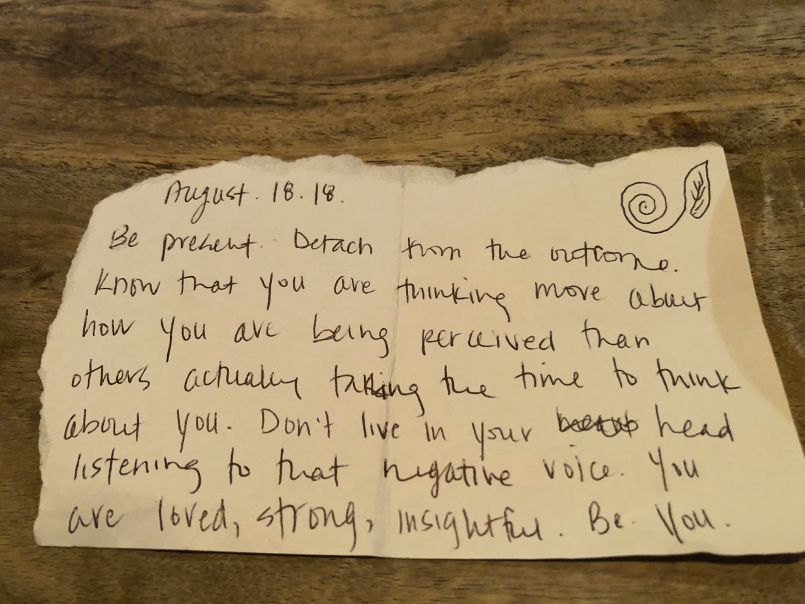 August. 18. 18.
Be present. Detach from the outcome.
Know that you are thinking more about
how you are being perceived than
others actually taking the time to think
about you. Don't live in your head
listening to that negative voice. You
are loved, strong, insightful. Be. You.